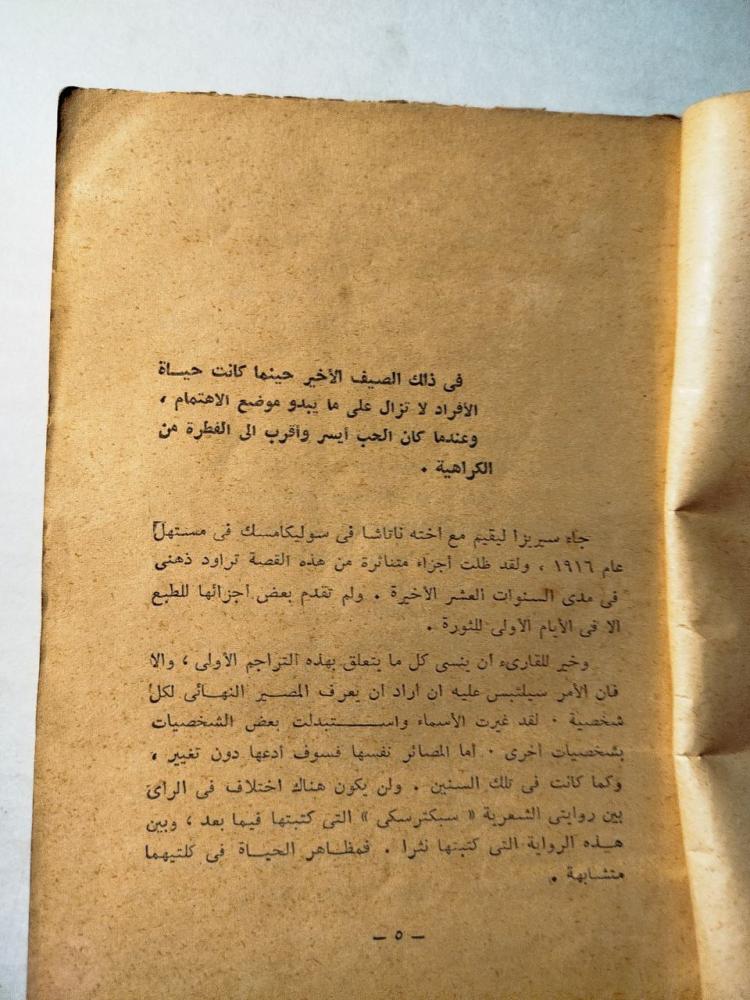 فى ذلك الصيف الأخير حينما كانت حيـاة
الأفراد لا تزال على ما يبدو موضع الاهتمام ،
وعندما كان الحب أيسر وأقرب الى الفطرة من
الكراهية .
جاء سيريزا ليقيم مع اخته ناتاشا فى سوليكامسك فى مستهل
عام ١٩١٦ ، ولقد ظلت أجزاء متناثرة من هذه القصة تراود ذهنى
فى مدى السنوات العشر الأخيرة . ولم تقدم بعض أجزائها للطبع
الا فى الأيام الأولى للثورة .
وخير للقارىء ان ينسى كل ما يتعلق بهذه التراجم الأولى ، والا
فان الأمر سيلتبس عليه ان أراد ان يعرف المصـير النهـائى لكل
شخصية . لقد غيرت الأسماء واسـتبدلت بعض الشخصيات
بشخصيات أخرى . أما المصائر نفسها فسوف أدعها دون تغيير ،
وكما كانت فى تلك السنين . ولن يكون هناك اختلاف فى الرأى
بين روايتى الشعرية « سبكترسكى » التى كتبتها فيما بعد ، وبين
هـذه الرواية التى كتبتها نثرا . فمظـاهر الحيـاة فى كلتيهما
متشابهة .
– ٥ –